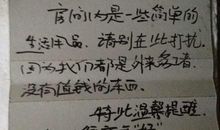 房间内是一些简单的
生活用品、请别在此打扰
因为我们都是外来务工者，
没有值钱的东西。
特此温馨提醒